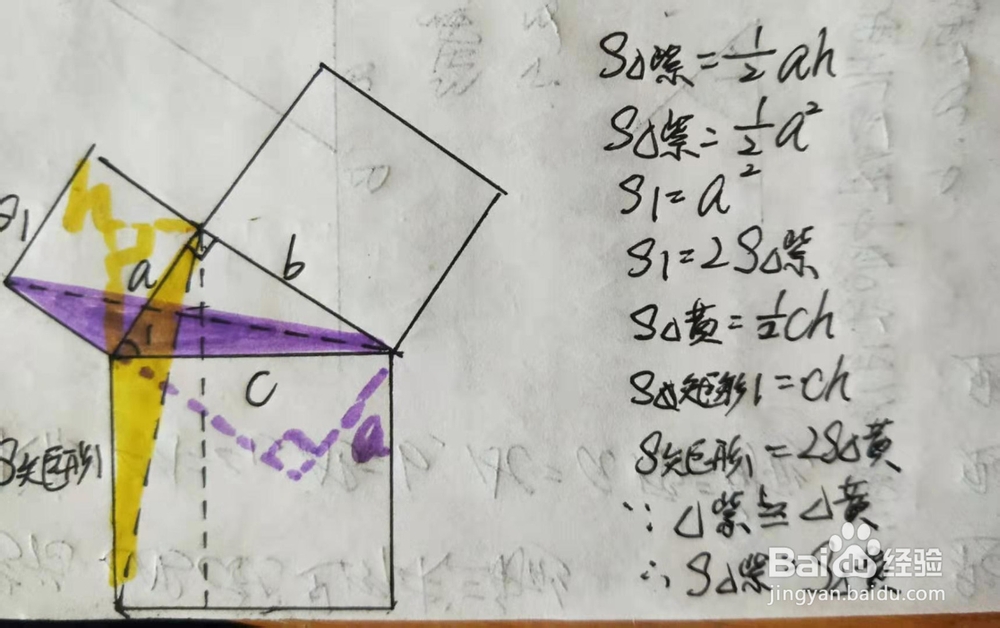 S△紫=½ah
S△紫=½a²
S1=a²
S1=2S△紫
S△黄=½ch
S矩形1=ch
S矩形1=2S△黄
∵△紫≌△黄
∴S△紫=
S1
h
a
b
1
c
a
S矩形1
Baidu经验
jingyan.baidu.com